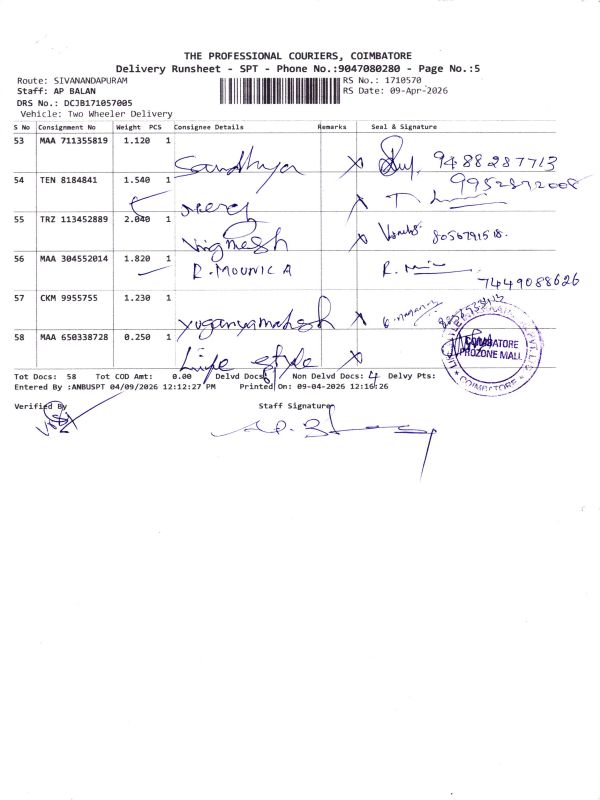 THE PROFESSIONAL COURIERS, COIMBATORE
Delivery Runsheet - SPT - Phone No.:9047080280 - Page No.:5
Route: SIVANANDAPURAM RS No.: 1710570
Staff: AP BALAN RS Date: 09-Apr-2026
DRS No.: DCJB171057005
Vehicle: Two Wheeler Delivery
S No Consignment No Weight PCS Consignee Details Remarks Seal & Signature
53 MAA 711355819 1.120 1
Sandhya X 9488287713
54 TEN 8184841 1.540 1 9952872008
55 TRZ 113452889 2.040 1
Vignesh X 8056791518.
56 MAA 304552014 1.820 1
R. MOUNICA R.
7449088626
57 CKM 9955755 1.230 1
X
58 MAA 650338728 0.250 1
COIMBATORE
PROZONE MALL
COIMBATORE
Life style X
Tot Docs: 58 Tot COD Amt: 0.00 Delvd Docs: Non Delvd Docs: 4 Delvy Pts:
Entered By :ANBUSPT 04/09/2026 12:12:27 PM Printed On: 09-04-2026 12:16:26
Verified By Staff Signature
AP. B